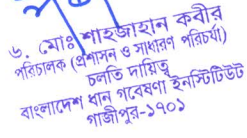 ড. মোঃ শাহজাহান কবীর
পরিচালক (প্রশাসন ও সাধারণ পরিচর্যা)
চলতি দায়িত্ব
বাংলাদেশ ধান গবেষণা ইনস্টিটিউট
গাজীপুর-১৭০১